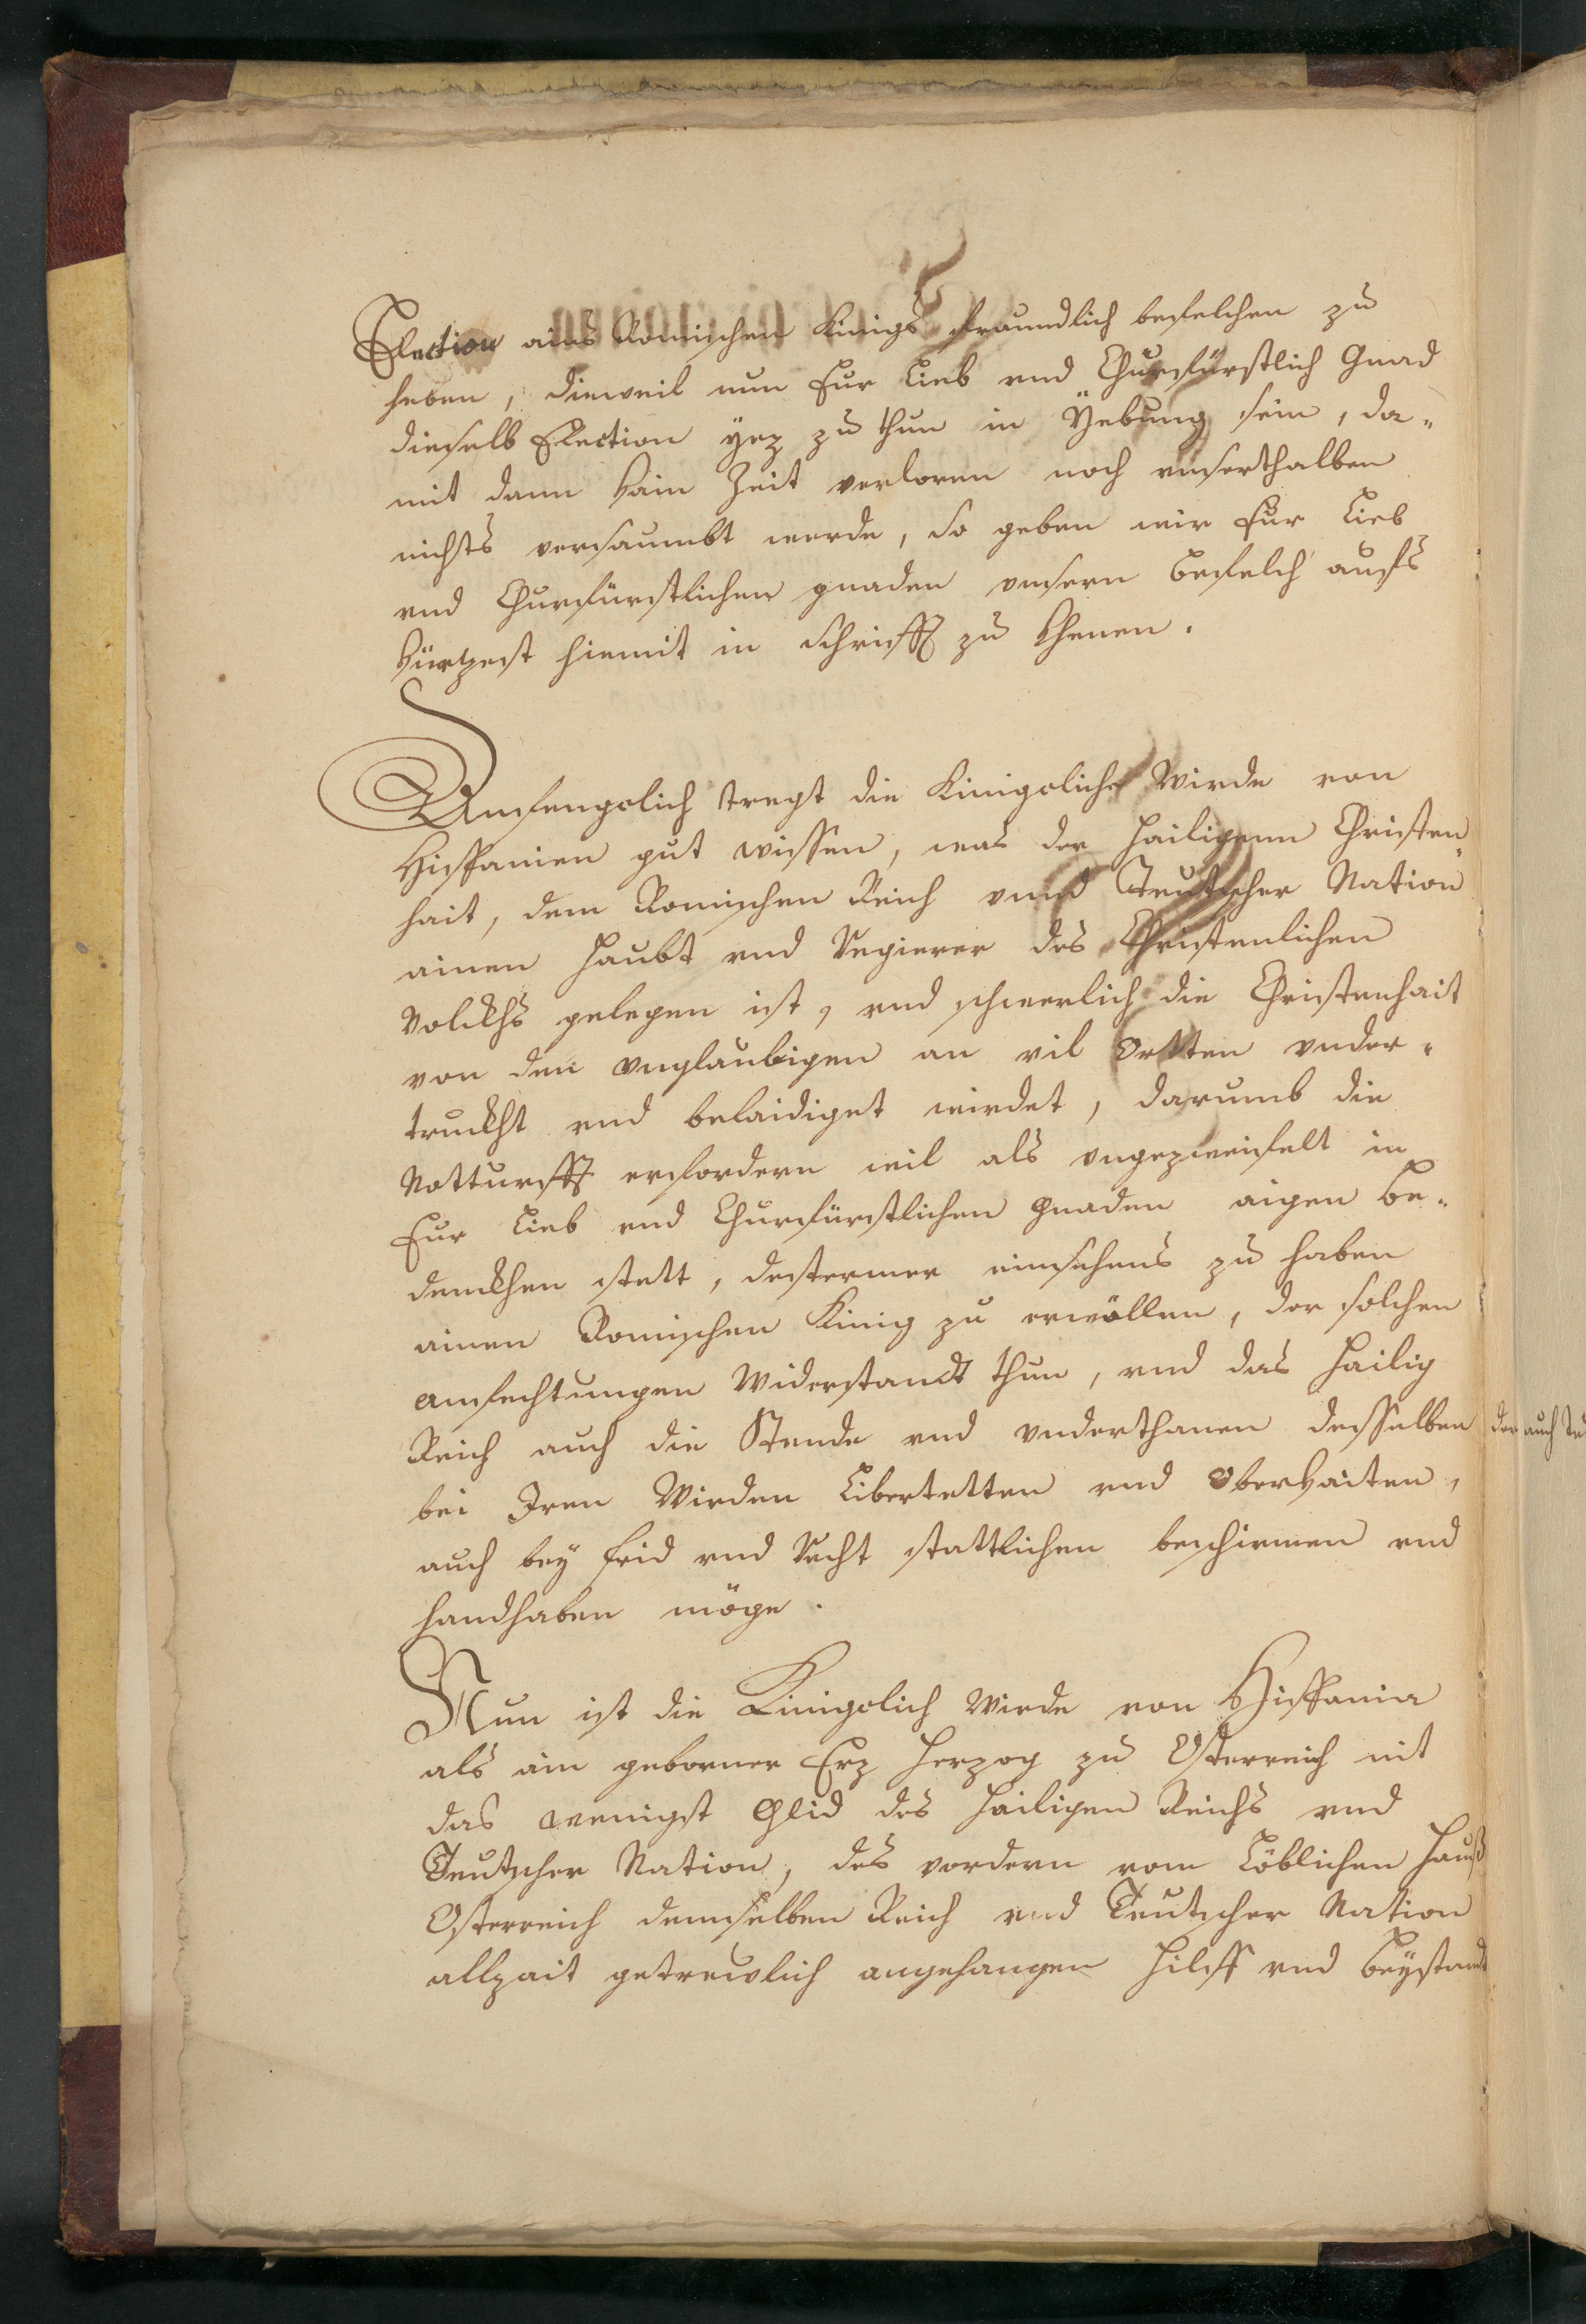 Election ains Romischen Kinigs freundlich befelchen zu
haben, dieweil nun Eur Lieb vnd Churfürstlich Gnad
dieselb Election yez zu thun in Yebung sein, da-
mit dann kain Zeit verloren noch vnserthalben
nichts versaumbt werde, so geben wir Eur Lieb
vnd Churfürstlichen gnaden vnsern Befelch aufs
kürtzest hiemit in Schrifft zu Ehenen.
Anfengclich tregt die Kinigcliche Wirde von
Hispanien gut wissen, was der Hailigenn Christen-
hait, dem Romischen Reich vnnd Teutscher Nation
ainen Haubt vnd Regierer des Christenlichen
Volckhs gelegen ist, vnd schwerlich die Christenhait
von den vnglaubigen an vil Ortten vnder-
truckht vnd belaidiget wirdet, darumb die
Notturfft erfordern wil als vngezweifelt in
Eur Lieb vnd Churfürstlichen Gnaden aigen Be-
denckhen stett, destermer einsehens zu haben
ainen Romischen Kinig zu erwöllen, der solchen
anfechtungen Widerstandt thun, vnd das Hailig
Reich auch die Stende vnd vnderthanen desselben
bei Iren Wirden Libertetten vnd Oberkaiten,
auch bey frid vnd Recht stattlichen beschirmen vnd
handhaben möge.
Nun ist die Kinigclich Wirde von Hispania
als ain geborner Erz Herzog zu Osterreich nit
das wenigst Glid des Hailigen Reichs vnd
Teutscher Nation, des vordern vom Löblichen Hauß
Osterreich demselben Reich vnd Teutscher Nation
allzait getrewlich angehangen Hilff vnd Beystandt